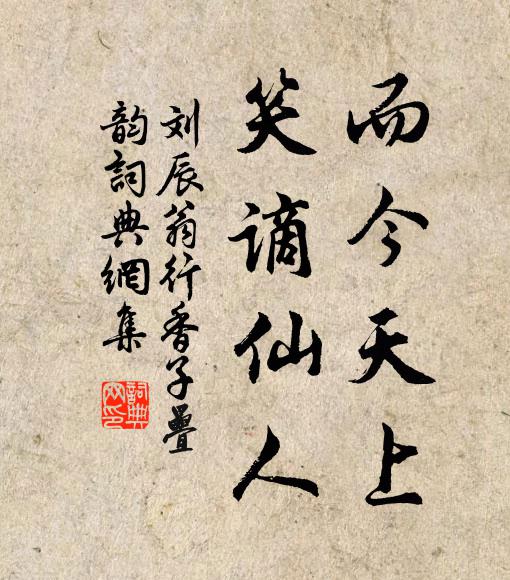 而今天上
笑謫仙人
刘辰翁行香子疊
韵詞典網集
詞典网印